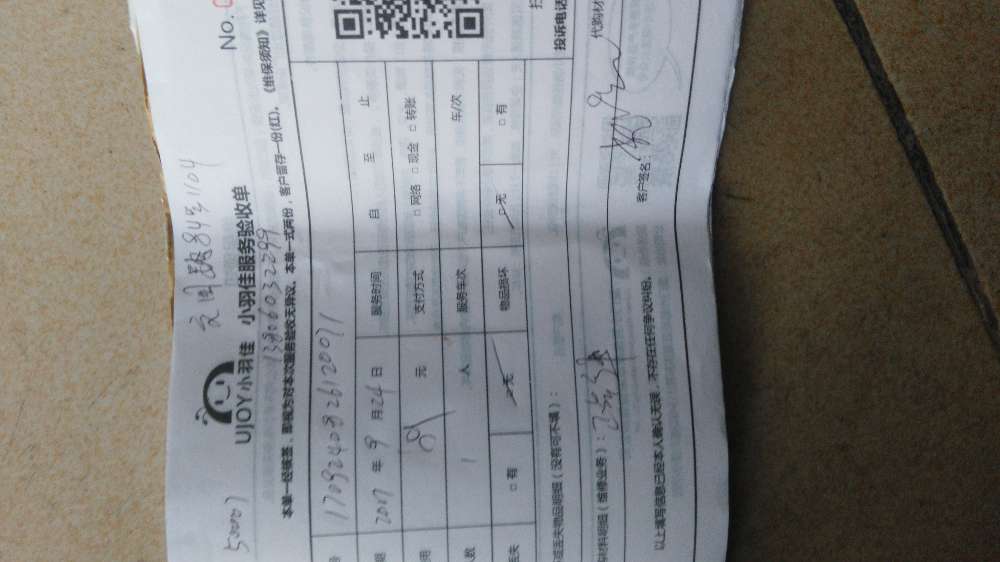 50007 文园路84号1104
UJOY小羽佳 小羽佳服务验收单 No.
13806032299
本单一经核签，即视为对本次服务验收无异议。本单一式两份，客户留存一份(红)。《维保须知》详见
号 170924082612007)1
期 2017 年 9 月 24 日 服务时间 自 至 止
用 元 支付方式 □ 网络 □ 现金 □ 转账
人数 1 人 服务车次 车/次
丢失 □ 有 □ 无 物品损坏 □ 无 □ 有
投诉电话
或丢失物品明细（没有可不填）：
材料明细（维修业务）： 代购材
以上填写信息已经本人确认无误，不存在任何争议纠纷。 客户签名：